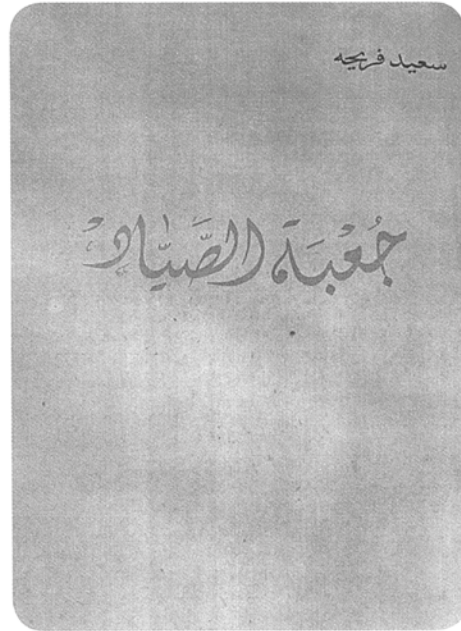 سعيد فريحه
جُعْبَة الصَّيَّاد